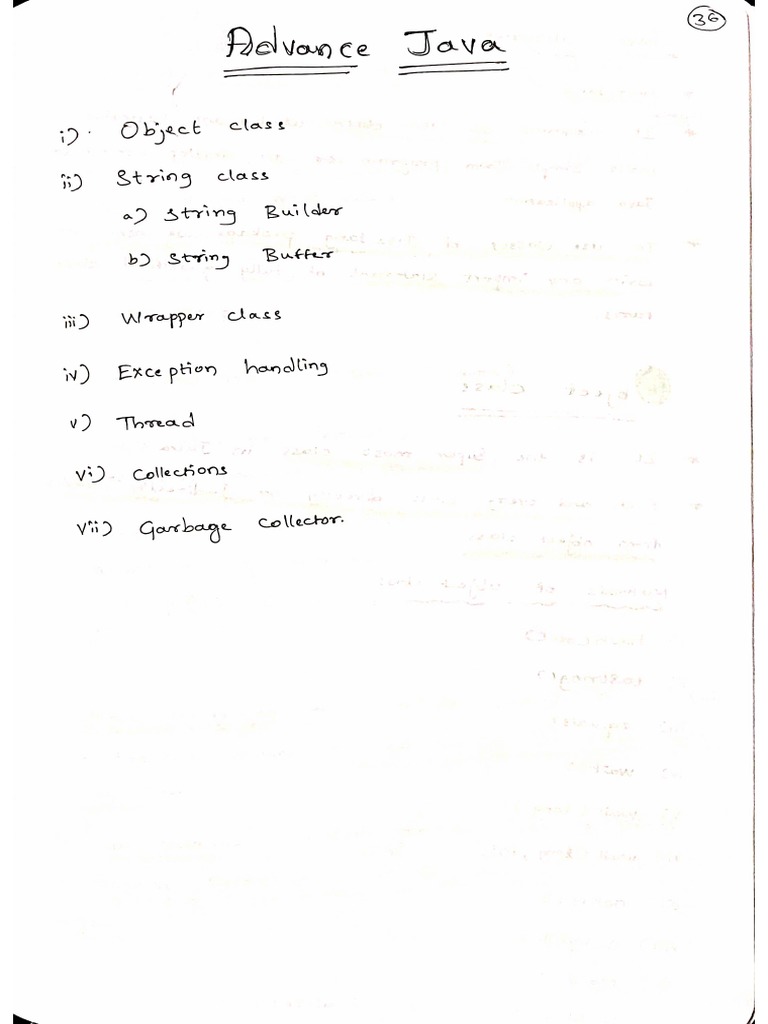 36
Advance Java
i). Object class
ii) String class
a) String Builder
b) String Buffer
iii) Wrapper class
iv) Exception handling
v) Thread
vi) Collections
vii) Garbage collector.